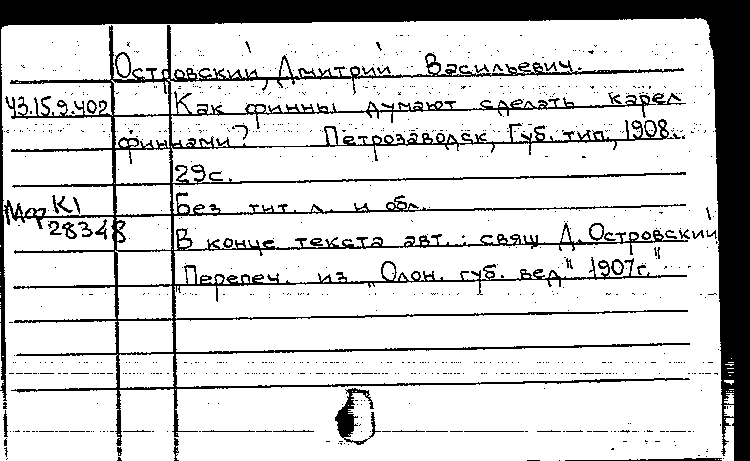 Островский, Дмитрий Васильевич.
У3.15.9.402 Как финны думают сделать карел
финнами? Петрозаводск, Губ. тип., 1908.
29с.
Мф К1 Без тит. л. и обл.
28348
В конце текста авт.: свящ Д. Островский
"Перепеч. из „Олон. губ. вед" 1907г."